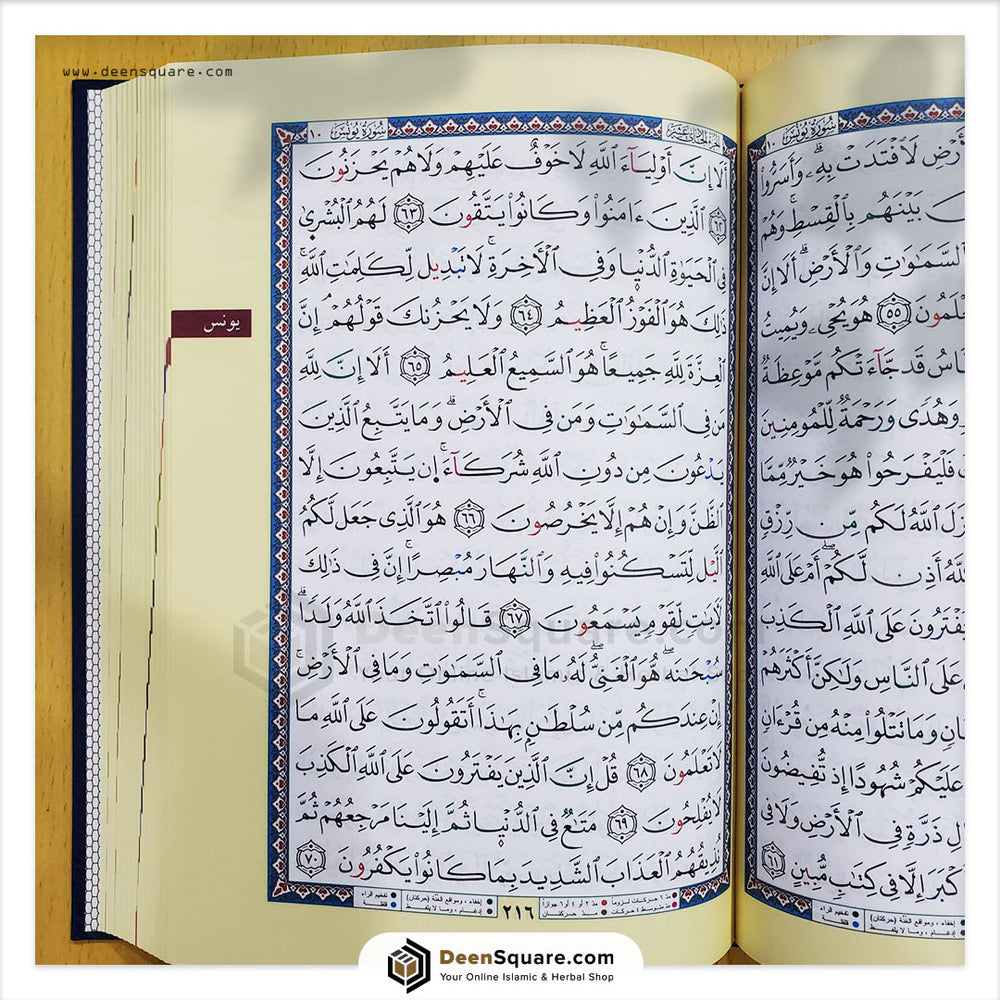 www.deensquare.com
سُورَةُ يُونُسَ ١٠
أَلَآ إِنَّ أَوْلِيَآءَ ٱللَّهِ لَا خَوْفٌ عَلَيْهِمْ وَلَا هُمْ يَحْزَنُونَ
٦٢ ٱلَّذِينَ ءَامَنُوا۟ وَكَانُوا۟ يَتَّقُونَ ٦٣ لَهُمُ ٱلْبُشْرَىٰ
فِى ٱلْحَيَوٰةِ ٱلدُّنْيَا وَفِى ٱلْأَخِرَةِ ۚ لَا تَبْدِيلَ لِكَلِمَٰتِ ٱللَّهِ ۚ
ذَٰلِكَ هُوَ ٱلْفَوْزُ ٱلْعَظِيمُ ٦٤ وَلَا يَحْزُنكَ قَوْلُهُمْ ۘ إِنَّ
ٱلْعِزَّةَ لِلَّهِ جَمِيعًا ۚ هُوَ ٱلسَّمِيعُ ٱلْعَلِيمُ ٦٥ أَلَآ إِنَّ لِلَّهِ
مَن فِى ٱلسَّمَٰوَٰتِ وَمَن فِى ٱلْأَرْضِ ۗ وَمَا يَتَّبِعُ ٱلَّذِينَ
يَدْعُونَ مِن دُونِ ٱللَّهِ شُرَكَآءَ ۚ إِن يَتَّبِعُونَ إِلَّا
ٱلظَّنَّ وَإِنْ هُمْ إِلَّا يَخْرُصُونَ ٦٦ هُوَ ٱلَّذِى جَعَلَ لَكُمُ
ٱلَّيْلَ لِتَسْكُنُوا۟ فِيهِ وَٱلنَّهَارَ مُبْصِرًا ۚ إِنَّ فِى ذَٰلِكَ
لَأَيَٰتٍ لِّقَوْمٍ يَسْمَعُونَ ٦٧ قَالُوا۟ ٱتَّخَذَ ٱللَّهُ وَلَدًا ۗ
سُبْحَٰنَهُۥ ۖ هُوَ ٱلْغَنِىُّ ۖ لَهُۥ مَا فِى ٱلسَّمَٰوَٰتِ وَمَا فِى ٱلْأَرْضِ ۚ
إِنْ عِندَكُم مِّن سُلْطَٰنٍۭ بِهَٰذَآ ۚ أَتَقُولُونَ عَلَى ٱللَّهِ مَا
لَا تَعْلَمُونَ ٦٨ قُلْ إِنَّ ٱلَّذِينَ يَفْتَرُونَ عَلَى ٱللَّهِ ٱلْكَذِبَ
لَا يُفْلِحُونَ ٦٩ مَتَٰعٌ فِى ٱلدُّنْيَا ثُمَّ إِلَيْنَا مَرْجِعُهُمْ ثُمَّ
نُذِيقُهُمُ ٱلْعَذَابَ ٱلشَّدِيدَ بِمَا كَانُوا۟ يَكْفُرُونَ ٧٠
٢١٦
يونس
سُورَةُ يُونُسَ ١٠
ٱلْأَرْضِ لَٱفْتَدَتْ بِهِۦ ۗ وَأَسَرُّوا۟
بَيْنَهُم بِٱلْقِسْطِ ۚ وَهُمْ
ٱلسَّمَٰوَٰتِ وَٱلْأَرْضِ ۗ أَلَآ إِنَّ
٥٥ هُوَ يُحْىِۦ وَيُمِيتُ
قَدْ جَآءَتْكُم مَّوْعِظَةٌ
وَهُدًى وَرَحْمَةٌ لِّلْمُؤْمِنِينَ
فَلْيَفْرَحُوا۟ هُوَ خَيْرٌ مِّمَّا
ٱللَّهُ لَكُم مِّن رِّزْقٍ
أَذِنَ لَكُمْ ۖ أَمْ عَلَى ٱللَّهِ
يَفْتَرُونَ عَلَى ٱللَّهِ ٱلْكَذِبَ
عَلَى ٱلنَّاسِ وَلَٰكِنَّ أَكْثَرَهُمْ
وَمَا تَتْلُوا۟ مِنْهُ مِن قُرْءَانٍ
عَلَيْكُمْ شُهُودًا إِذْ تُفِيضُونَ
ذَرَّةٍ فِى ٱلْأَرْضِ وَلَا فِى
أَكْبَرَ إِلَّا فِى كِتَٰبٍ مُّبِينٍ ٦١
DeenSquare.com
DeenSquare.com
Your Online Islamic & Herbal Shop